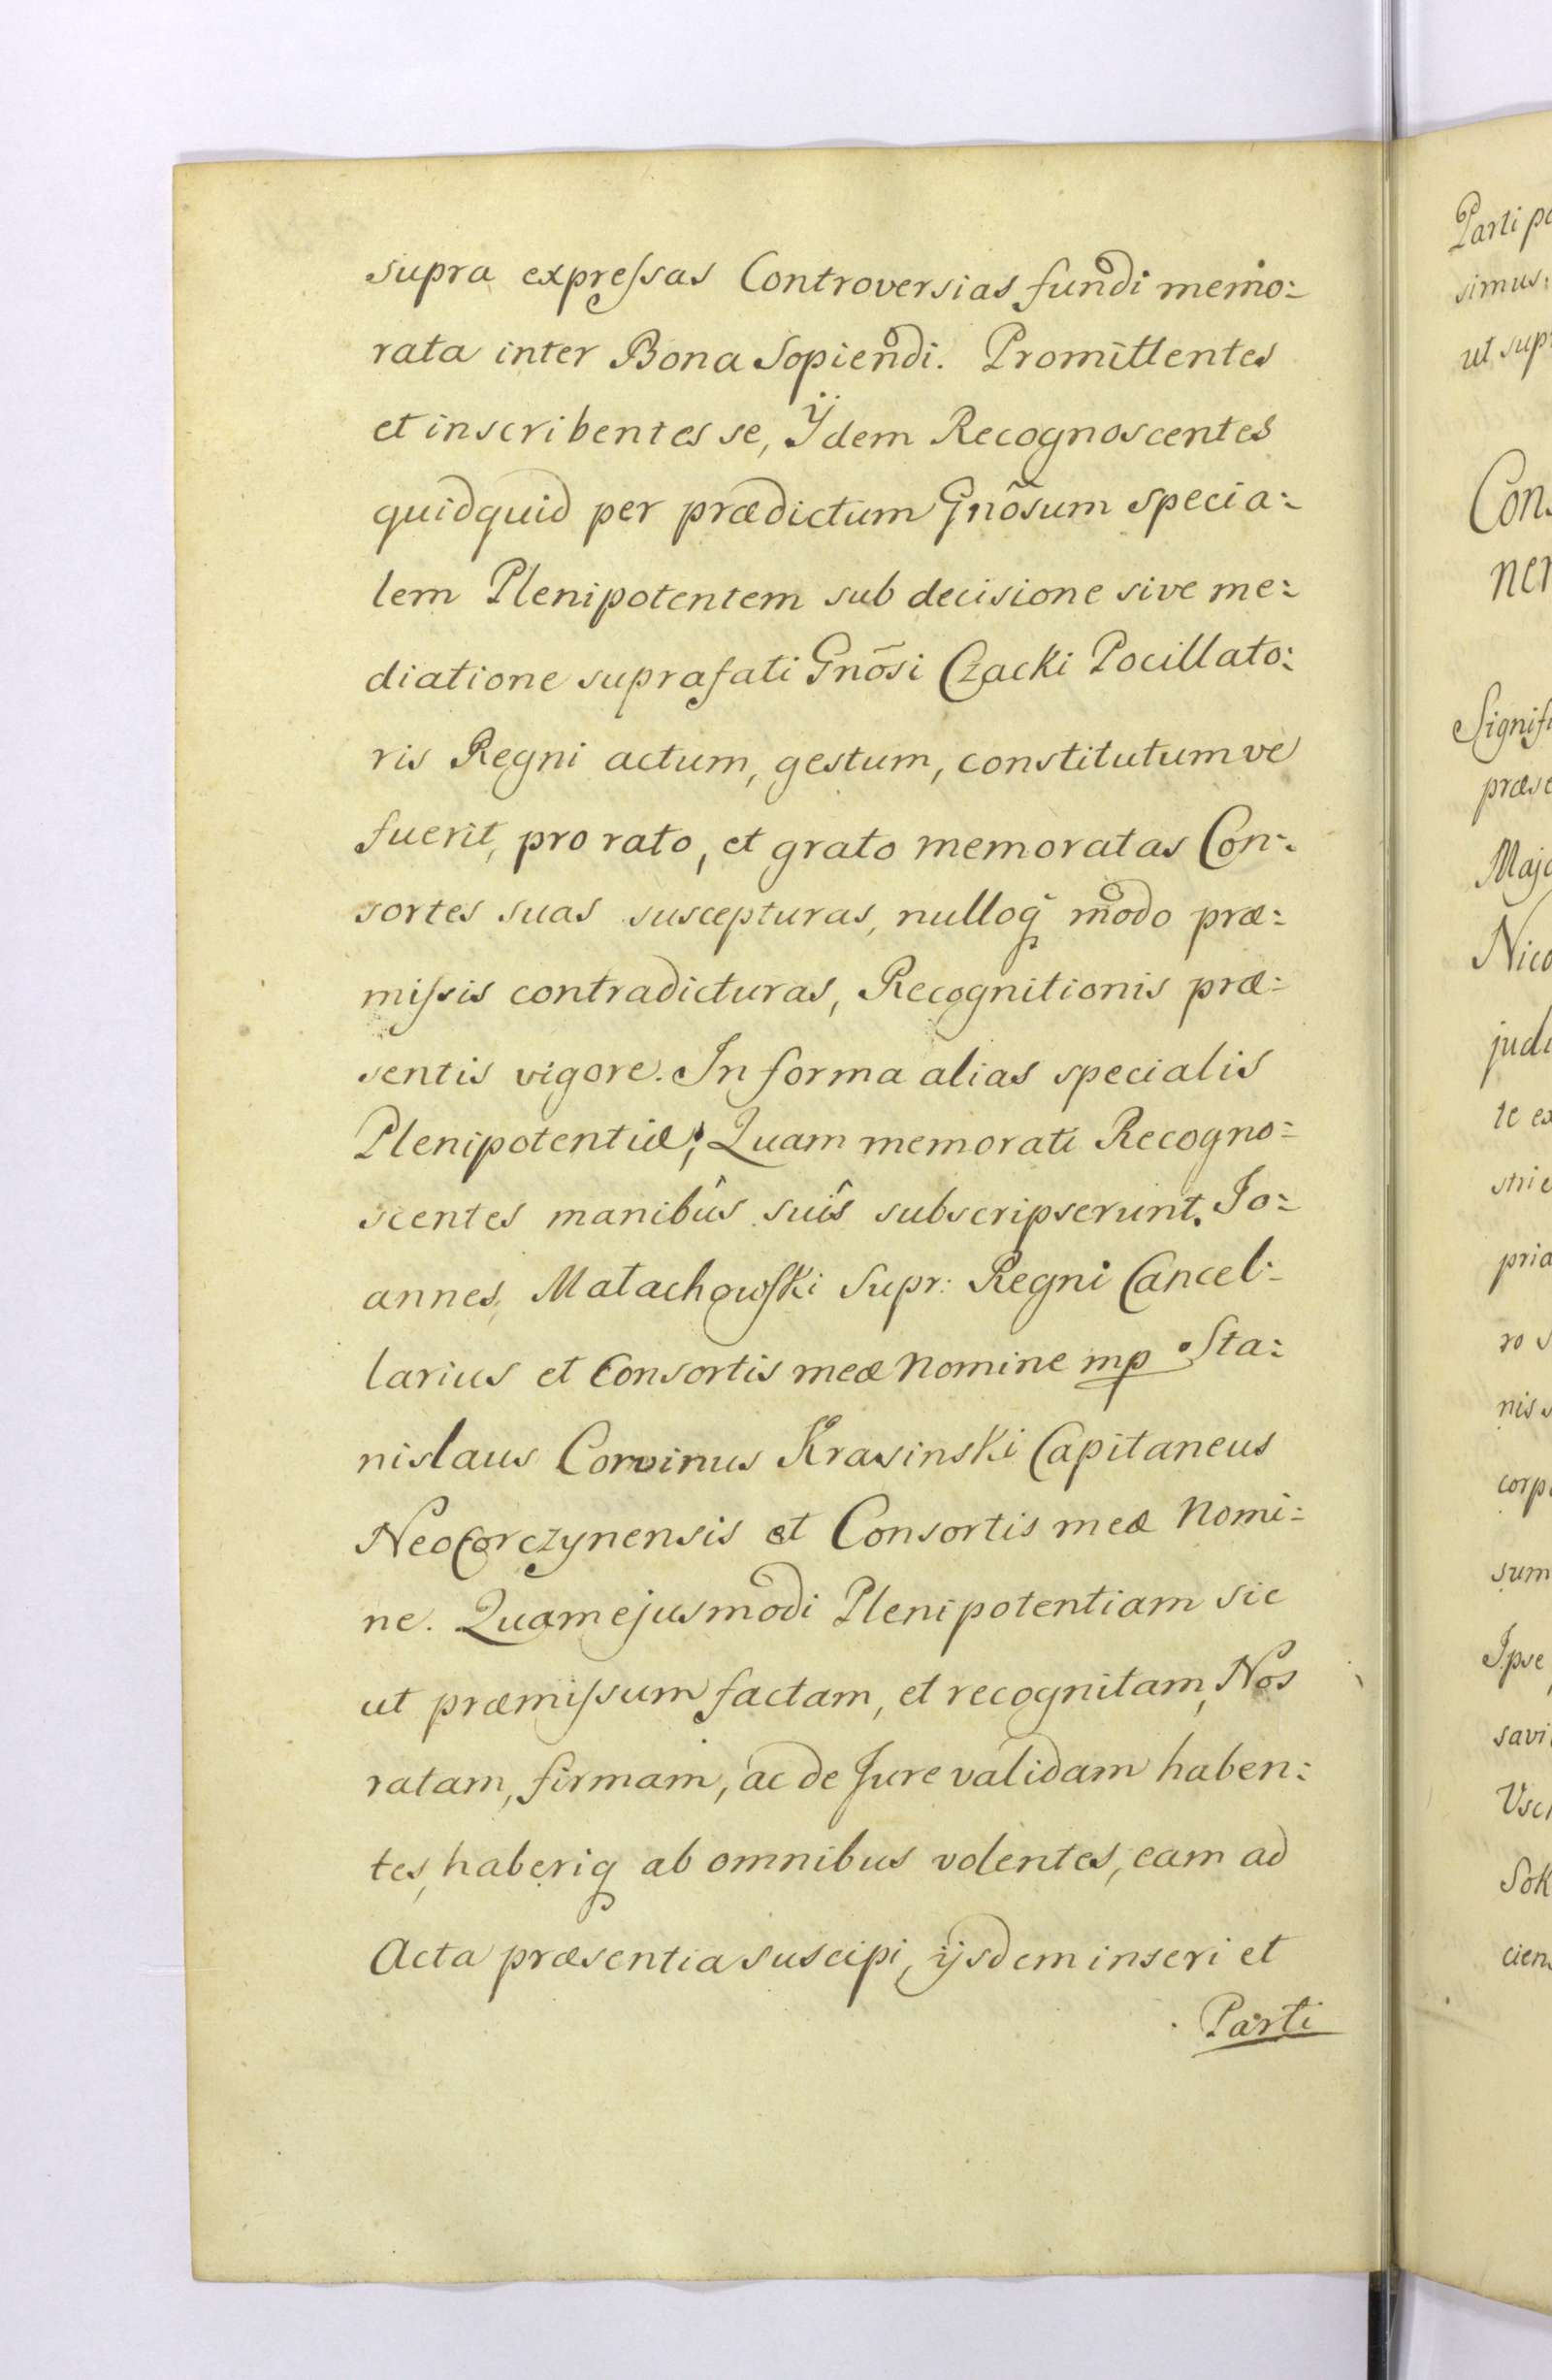 supra expreſsas Controversias fundi memo:
rata inter Bona Sopiendi. Promittentes
et inscribentes se, Ÿdem Recognoscentes
quidquid per prædictum Gnõsum specia:
lem Plenipotentem sub decisione sive me:
diatione suprafati Gnõsi Czacki Pocillato:
ris Regni actum, gestum, constitutum ve
fuerit, pro rato, et grato memoratas Con:
sortes suas suscepturas, nulloq̃ modo præ:
miſsis contradicturas, Recognitionis præ:
sentis vigore. In forma alias specialis
Plenipotentiæ; Quam memorati Recogno:
scentes manibûs suîs subscripserunt. Jo:
annes, Małachowſki Supr: Regni Cancel:
larius et Consortis meæ Nomine mp Sta:
nislaus Corvinus Krasinski Capitaneus
NeoCorczynensis et Consortis meæ Nomi:
ne. Quam ejusmodi Plenipotentiam sic
ut præmiſsum factam, et recognitam, Nos
ratam, firmam, ac de Jure validam haben:
tes, haberiq ab omnibus volentes, eam ad
Acta præsentia suscipi, ijsdem inseri et
Parti
Parti
simus:
ut
Con
Signifi
Nico
judi
te
corp
sum
Ipse
savi